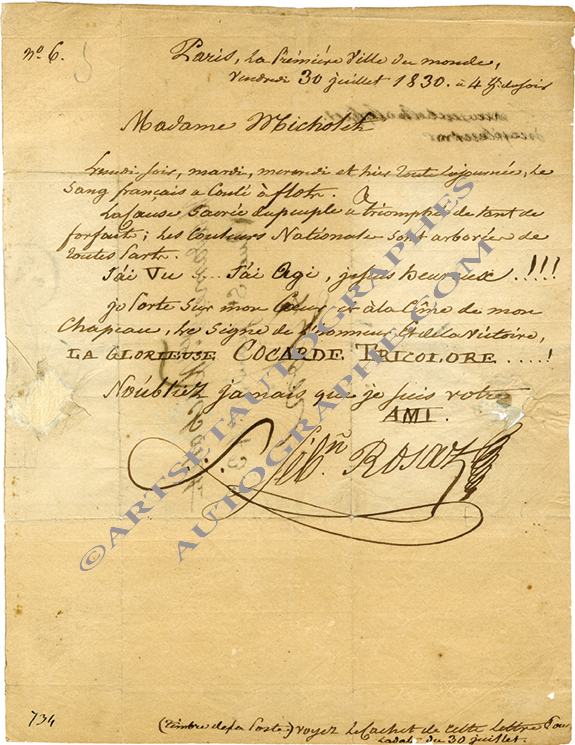 n.º 6.
Paris, La Prémiére Ville du monde,
Vendredi 30 juillet 1830. à 4 h. du soir
Madame Micholet
Lundi soir, mardi, mercredi et hier toute la journée, le
Sang français a Coulé à flots.
La Cause Sacrée du peuple a triomphé de tant de
forfaits; Les Couleurs Nationale sont arborées de
toutes Parts.
J'ai Vu ... J'ai Agi, je suis heureux !!!!
je Porte sur mon Cœur et à la Cîme de mon
Chapeau, Le Signe de l'honneur Et de la Victoire,
LA GLORIEUSE COCARDE TRICOLORE .....!
N'oubliez jamais que je suis votre
AMI.
Séb.n ROSAZ
734
(timbre de la Poste) voyez Le Cachet de cette Lettre Pour
La date du 30 juillet.
©ARTSETAUTOGRAPHES
AUTOGRAPHES